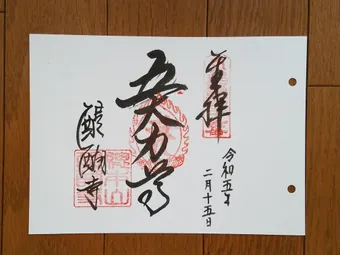 奉拝
令和五年
二月十五日
五大力尊
醍醐寺